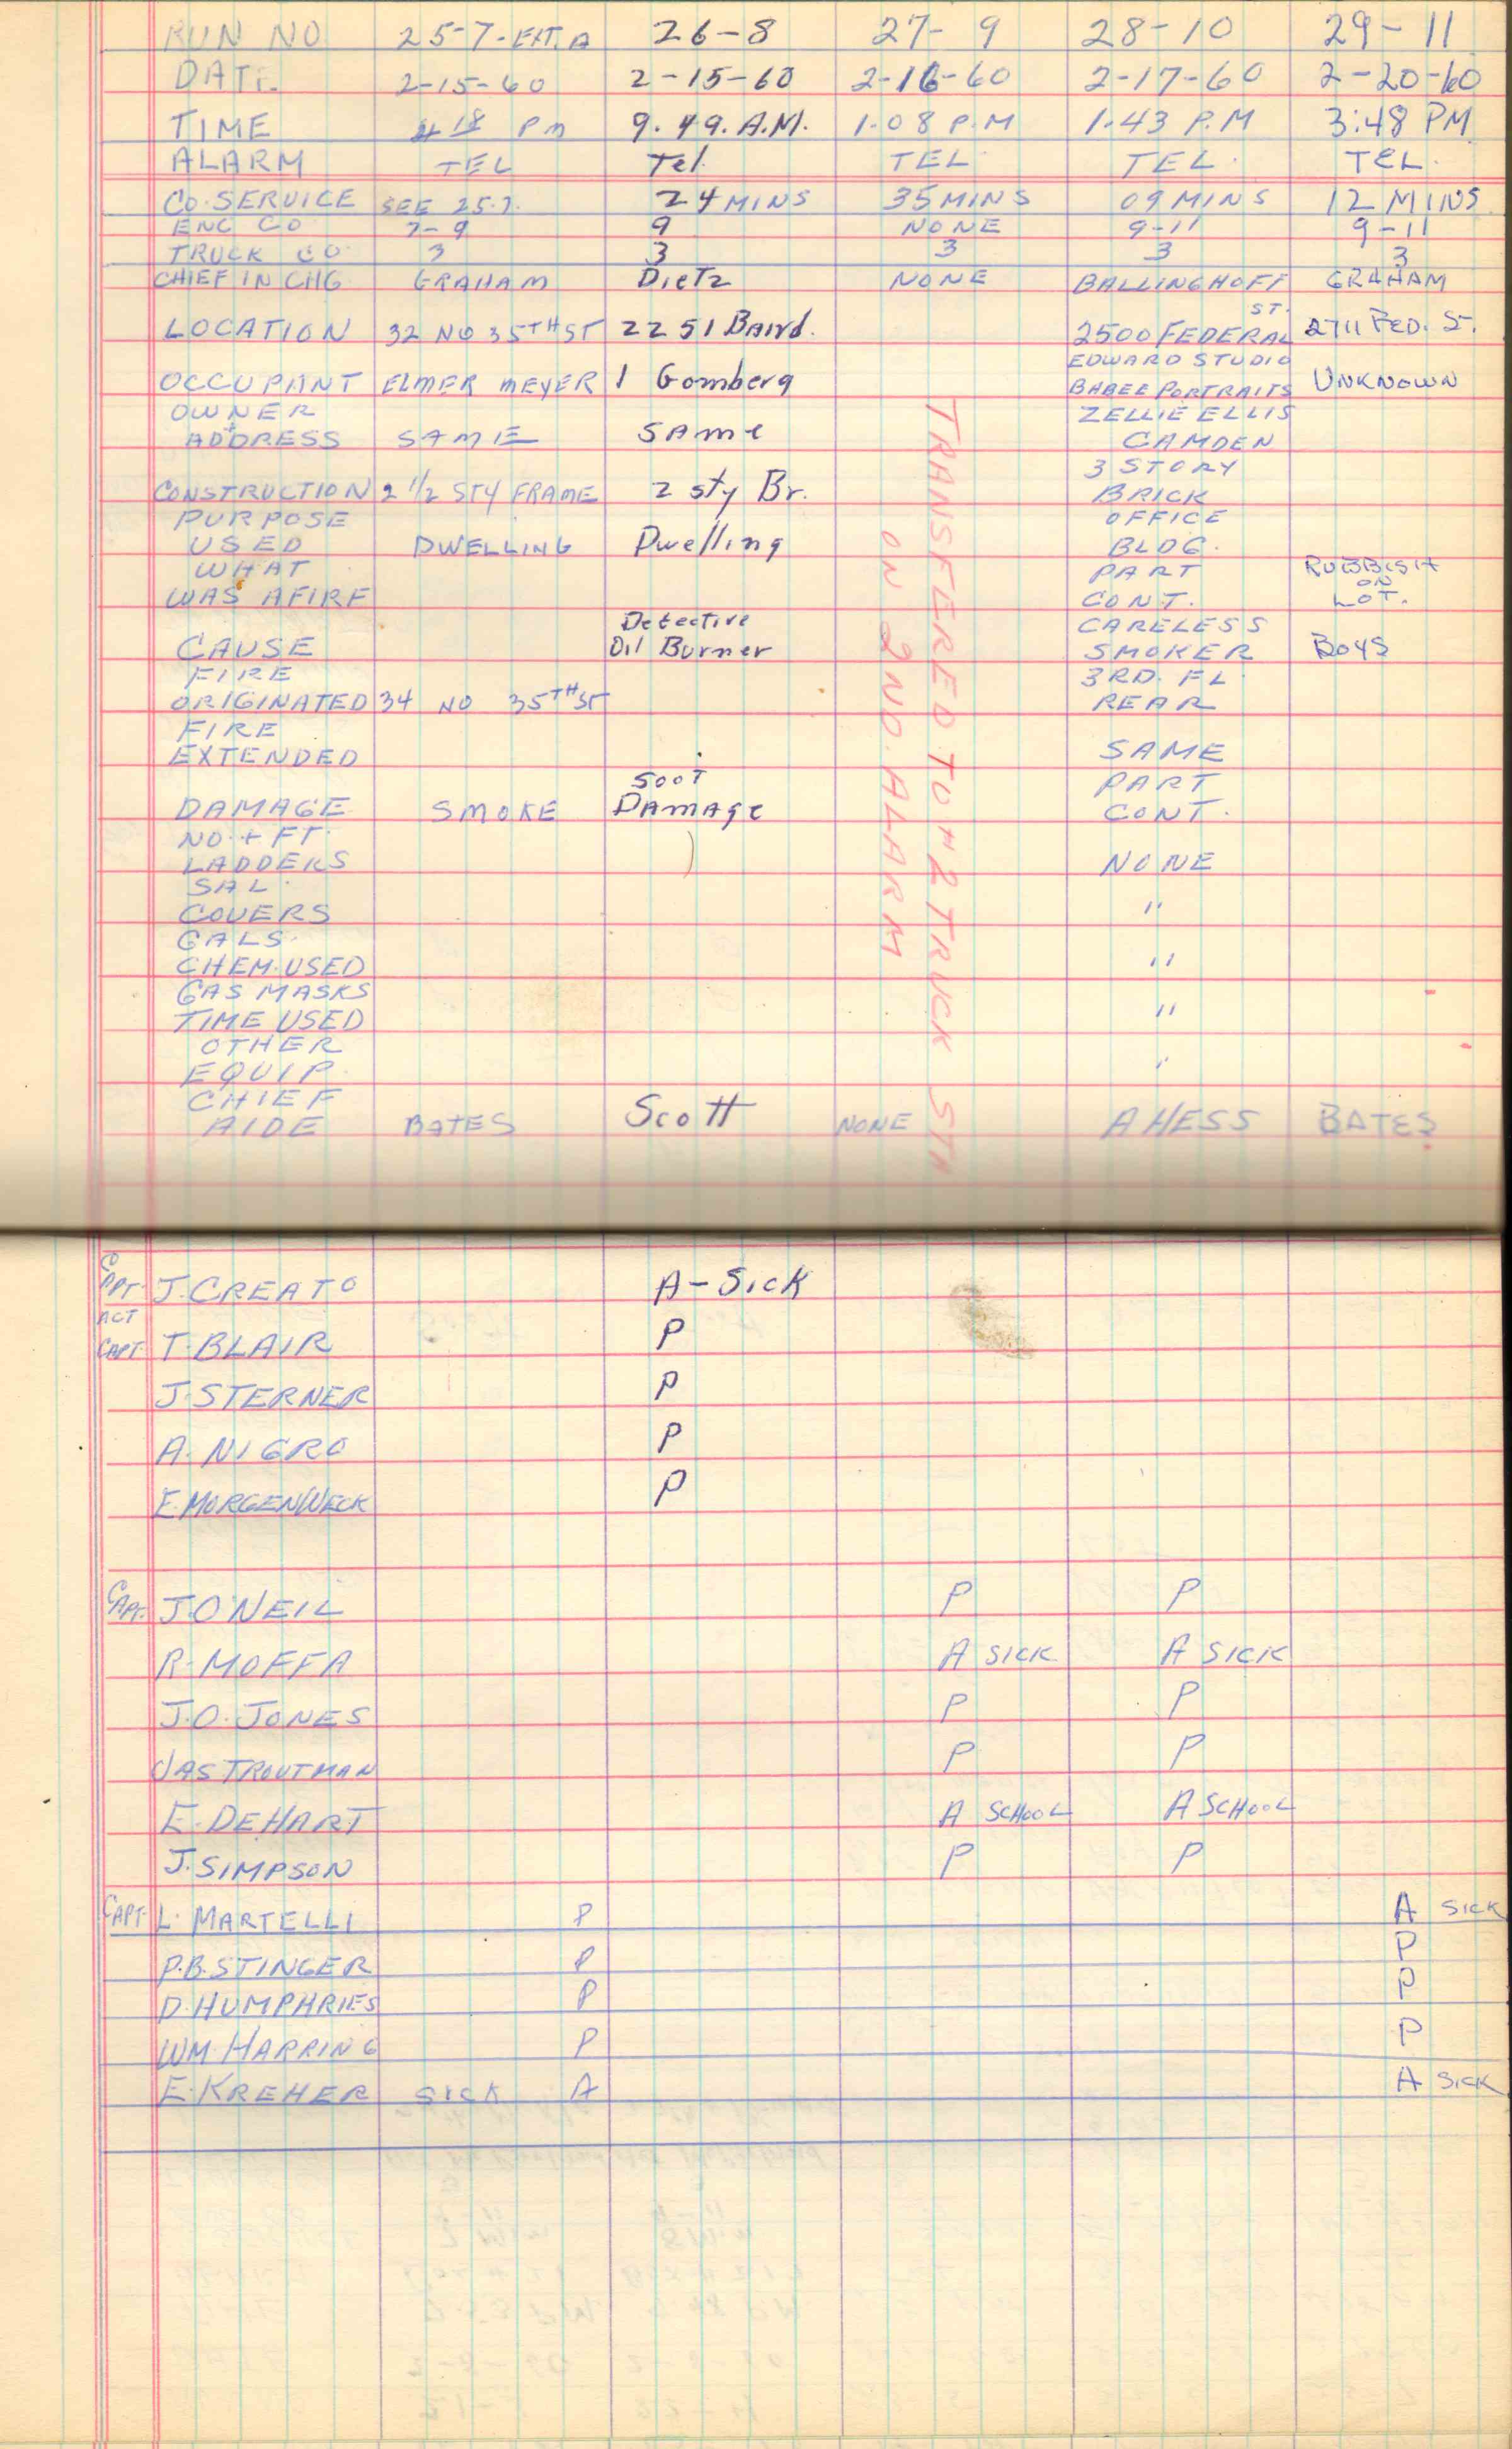 RUN NO 25-7-EXT. A 26-8 27-9 28-10 29-11
DATE 2-15-60 2-15-60 2-16-60 2-17-60 2-20-60
TIME 4 18 PM 9.49.A.M. 1.08 P.M 1.43 P.M 3:48 PM
ALARM TEL Tel. TEL TEL. TEL.
CO. SERVICE SEE 25.7. 24 MINS 35 MINS 09 MINS 12 MINS
ENG CO 7-9 9 NONE 9-11 9-11
TRUCK CO 3 3 3 3 3
CHIEF IN CHG GRAHAM Dietz NONE BALLINGHOFF GRAHAM
ST.
LOCATION 32 NO 35TH ST 2251 Baird. 2500 FEDERAL 2711 FED. ST.
EDWARD STUDIO
OCCUPANT ELMER MEYER I Gomberg BABEE PORTRAITS UNKNOWN
OWNER ZELLIE ELLIS
+
ADDRESS SAME SAME CAMDEN
3 STORY
CONSTRUCTION 2 1/2 STY FRAME 2 sty Br. BRICK
PURPOSE OFFICE
USED DWELLING Dwelling BLDG.
WHAT PART RUBBISH
ON
WAS AFIRE CONT. LOT.
Detective CARELESS
CAUSE Oil Burner SMOKER BOYS
FIRE 3RD. FL.
ORIGINATED 34 NO 35TH ST REAR
FIRE
EXTENDED SAME
SOOT PART
DAMAGE SMOKE DAMAGE CONT.
NO. + FT.
LADDERS NONE
SAL.
COVERS "
GALS.
CHEM. USED "
GAS MASKS
TIME USED "
OTHER
EQUIP. "
CHIEF
AIDE BATES Scott NONE A HESS BATES
TRANSFERED TO H 2 TRUCK STA
ON 2ND. ALARM
CAPT. J. CREATO A-SICK
ACT
CAPT. T. BLAIR P
J. STERNER P
A. NIGRO P
E. MORGENWECK P
CAPT. J. O'NEIL P P
R. MOFFA A SICK A SICK
J.O. JONES P P
JAS TROUTMAN P P
E. DEHART A SCHOOL A SCHOOL
J. SIMPSON P P
CAPT. L. MARTELLI P A SICK
P.B. STINGER P P
D. HUMPHRIES P P
WM HARRING P P
E. KREHER SICK A A SICK